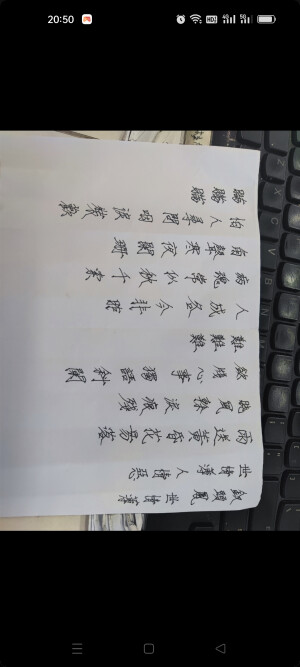 20:50
釵頭鳳 世情薄
世情薄 人情惡
雨送黃昏花易落
曉風乾 淚痕殘
欲牋心事 獨語斜闌
難難難
人成各 今非昨
病魂常似秋千索
角聲寒 夜闌珊
怕人尋問 咽淚裝歡
瞞瞞瞞